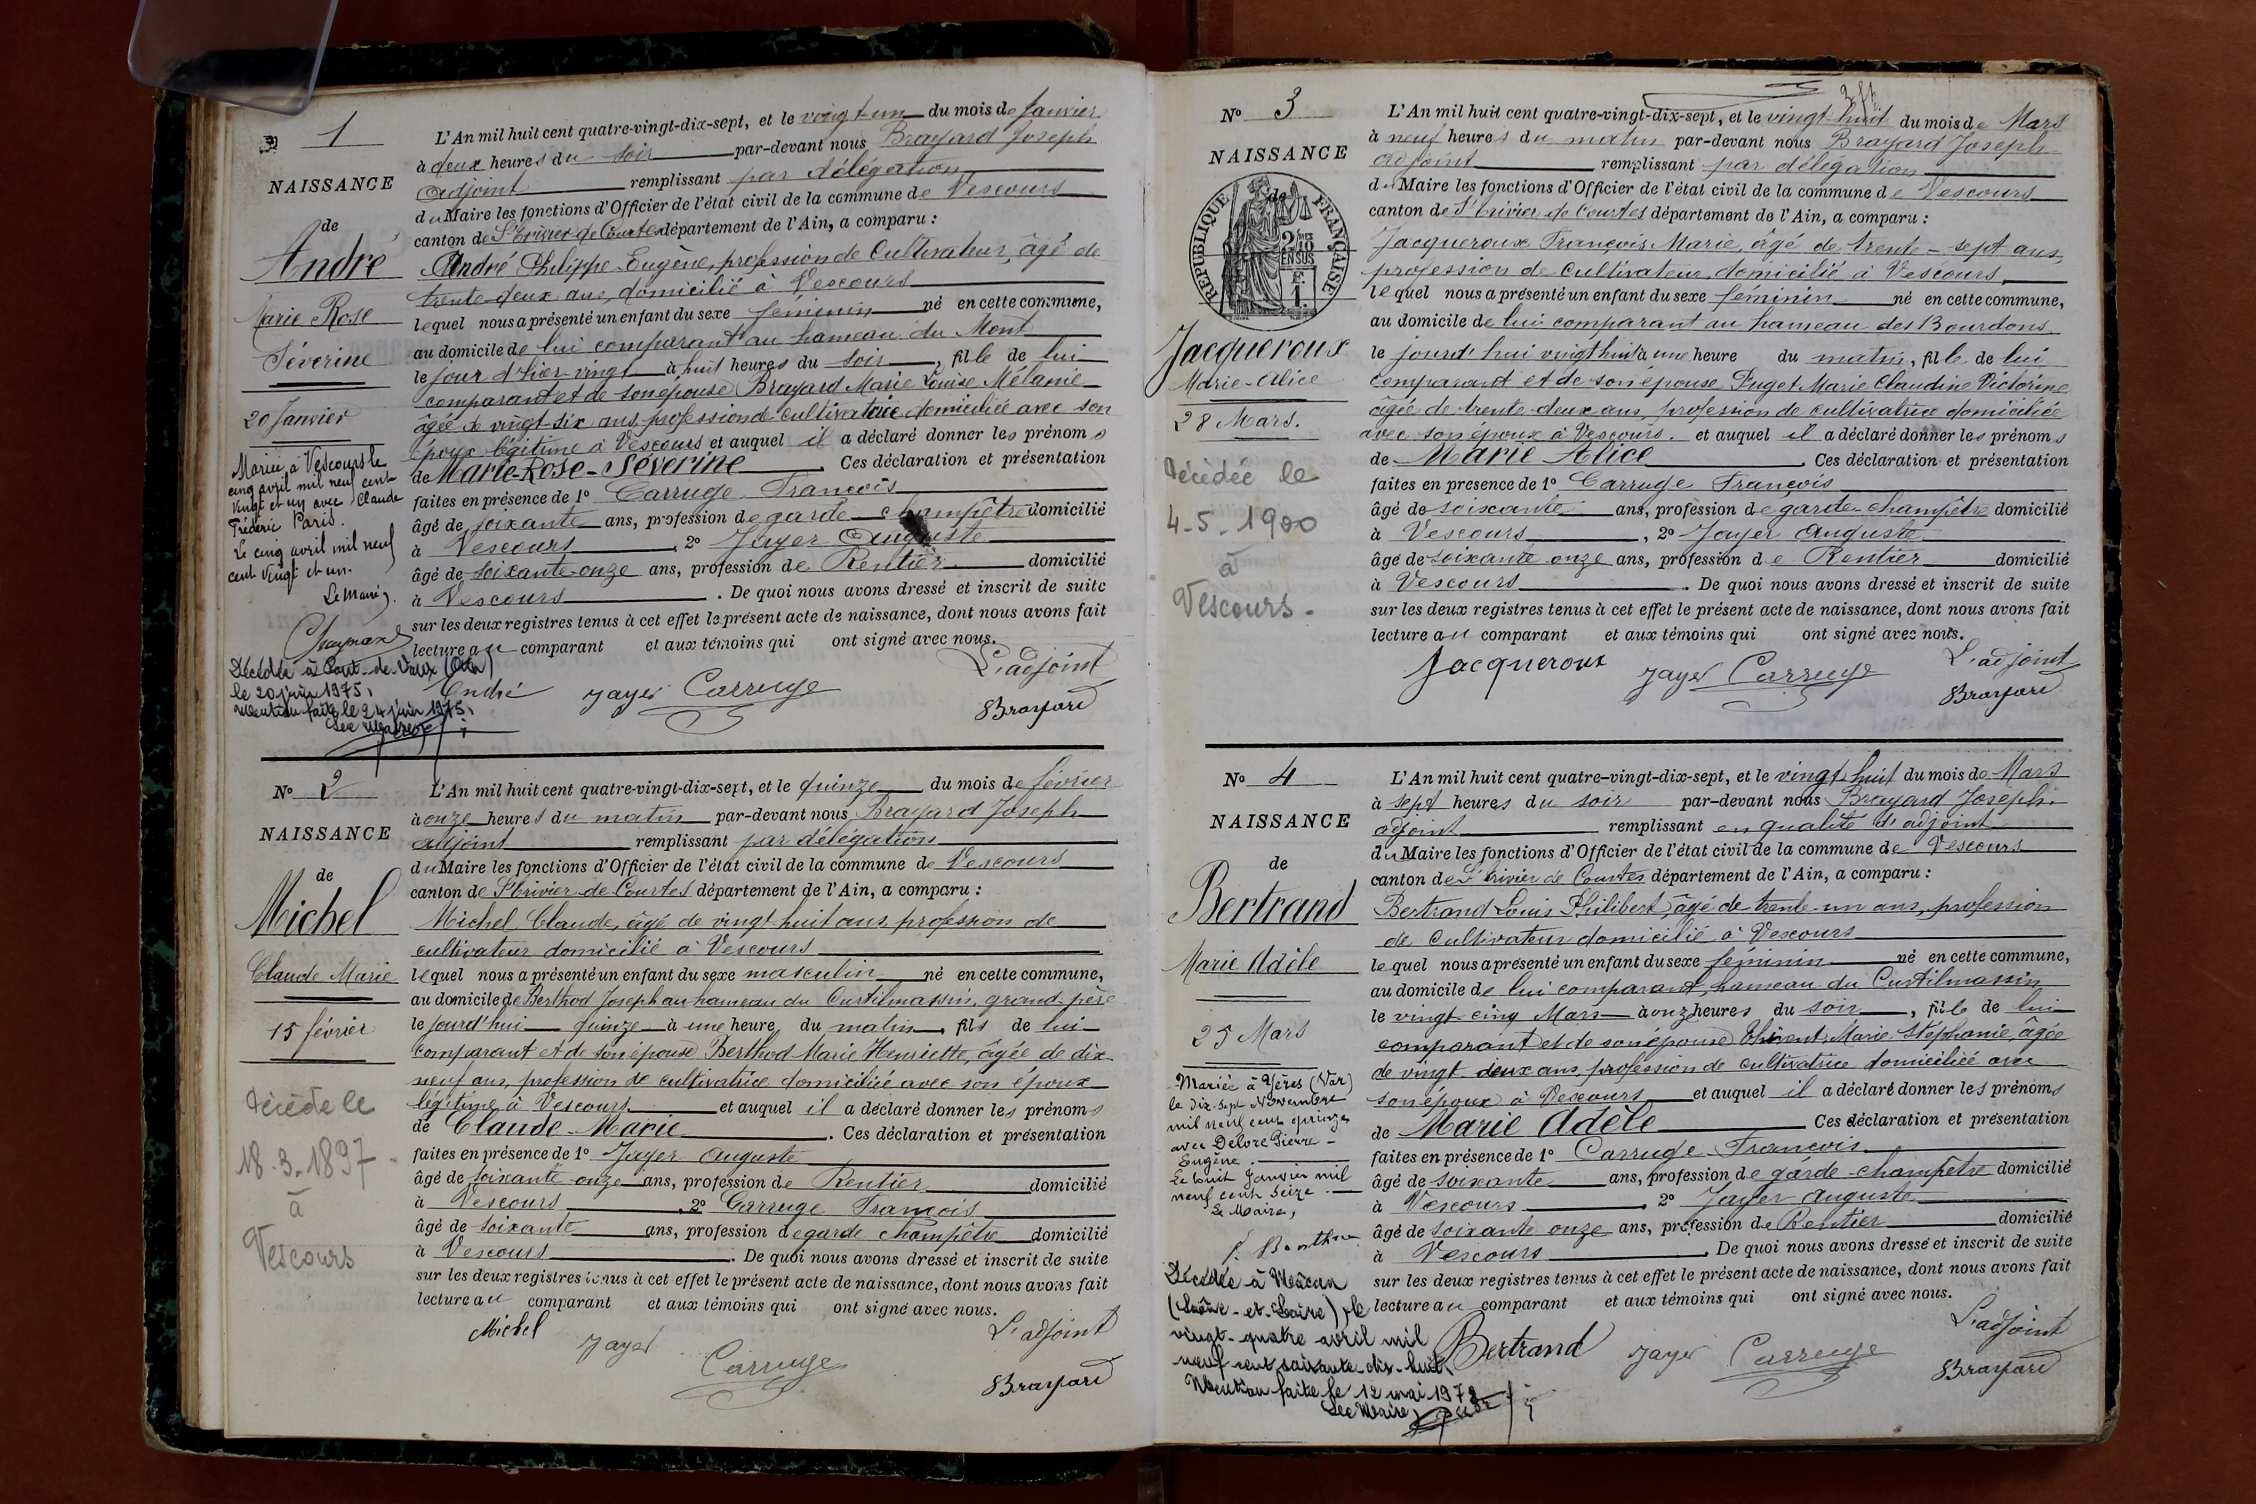 1
NAISSANCE
de
André
Marie Rose
Séverine
20 Janvier
Mariée à Vescours le
cinq avril mil neuf cent
vingt et un avec Claude
Frédéric Paris.
Le cinq avril mil neuf
cent vingt et un.
Le Maire,
Décédée à Pont-de-Vaux (Ain)
le 20 juin 1975.
Mention faite le 24 juin 1975.
L'An mil huit cent quatre-vingt-dix-sept, et le vingt-un du mois de Janvier
à deux heures du soir par-devant nous Brayard Joseph
adjoint remplissant par délégation
du Maire les fonctions d'Officier de l'état civil de la commune de Vescours
canton de St Trivier de Courtes département de l'Ain, a comparu :
André Philippe-Eugène, profession de Cultivateur, âgé de
trente-deux ans, domicilié à Vescours
lequel nous a présenté un enfant du sexe féminin né en cette commune,
au domicile de lui comparant au hameau du Mont
le jour d'hier vingt à huit heures du soir, fille de lui
comparant et de son épouse Brayard Marie Louise Mélanie
âgée de vingt-six ans, profession de cultivatrice domiciliée avec son
époux légitime à Vescours et auquel il a déclaré donner les prénoms
de Marie-Rose-Séverine. Ces déclaration et présentation
faites en présence de 1º Carruge François
âgé de soixante ans, profession de garde champêtre domicilié
à Vescours, 2º Jayer Auguste
âgé de soixante-onze ans, profession de Rentier domicilié
à Vescours. De quoi nous avons dressé et inscrit de suite
sur les deux registres tenus à cet effet le présent acte de naissance, dont nous avons fait
lecture au comparant et aux témoins qui ont signé avec nous.
L'adjoint
André Jayer Carruge
Brayard
Nº 2
NAISSANCE
de
Michel
Claude Marie
15 février
Décédé le
18.3.1897
à
Vescours
L'An mil huit cent quatre-vingt-dix-sept, et le quinze du mois de février
à onze heures du matin par-devant nous Brayard Joseph
adjoint remplissant par délégation
du Maire les fonctions d'Officier de l'état civil de la commune de Vescours
canton de St Trivier-de-Courtes département de l'Ain, a comparu :
Michel Claude, âgé de vingt-huit ans, profession de
cultivateur domicilié à Vescours
lequel nous a présenté un enfant du sexe masculin né en cette commune,
au domicile de Berthod Joseph au hameau du Curtilmassin, grand-père
le jourd'hui quinze à une heure du matin, fils de lui
comparant et de son épouse Berthod Marie Henriette, âgée de dix-
neuf ans, profession de cultivatrice domiciliée avec son époux
légitime à Vescours et auquel il a déclaré donner les prénoms
de Claude-Marie. Ces déclaration et présentation
faites en présence de 1º Jayer Auguste
âgé de soixante onze ans, profession de Rentier domicilié
à Vescours, 2º Carruge François
âgé de soixante ans, profession de garde champêtre domicilié
à Vescours. De quoi nous avons dressé et inscrit de suite
sur les deux registres tenus à cet effet le présent acte de naissance, dont nous avons fait
lecture au comparant et aux témoins qui ont signé avec nous.
Michel Jayer Carruge L'adjoint
Brayard
Nº 3
NAISSANCE
de
RÉPUBLIQUE FRANÇAISE
2/10 EN SUS
Jacqueroux
Marie-Alice
28 Mars.
Décédée le
4-5-1900
à
Vescours.
L'An mil huit cent quatre-vingt-dix-sept, et le vingt-huit du mois de Mars
à neuf heures du matin par-devant nous Brayard Joseph
adjoint remplissant par délégation
du Maire les fonctions d'Officier de l'état civil de la commune de Vescours
canton de St Trivier de Courtes département de l'Ain, a comparu :
Jacqueroux François Marie, âgé de trente-sept ans,
profession de cultivateur, domicilié à Vescours,
lequel nous a présenté un enfant du sexe féminin né en cette commune,
au domicile de lui comparant au hameau des Bourdons
le jourd'hui vingt huit à une heure du matin, fille de lui
comparant et de son épouse Puget Marie Claudine Victorine
âgée de trente-deux ans, profession de cultivatrice domiciliée
avec son époux à Vescours. et auquel il a déclaré donner les prénoms
de Marie Alice. Ces déclaration et présentation
faites en présence de 1º Carruge François
âgé de soixante ans, profession de garde-champêtre domicilié
à Vescours, 2º Jayer Auguste
âgé de soixante onze ans, profession de Rentier domicilié
à Vescours. De quoi nous avons dressé et inscrit de suite
sur les deux registres tenus à cet effet le présent acte de naissance, dont nous avons fait
lecture au comparant et aux témoins qui ont signé avec nous.
Jacqueroux Jayer Carruge L'adjoint
Brayard
Nº 4
NAISSANCE
de
Bertrand
Marie Adèle
25 Mars
Mariée à Hyères (Var)
le dix-sept Novembre
mil neuf cent quinze
avec Delore Pierre-
Eugène.
Le huit Janvier mil
neuf cent seize.
Le Maire,
Décédée à Mâcon
(Saône-et-Loire) le
vingt-quatre avril mil
neuf cent soixante-dix-huit.
Mention faite le 12 mai 1978
L'An mil huit cent quatre-vingt-dix-sept, et le vingt-huit du mois de Mars
à sept heures du soir par-devant nous Brayard Joseph
adjoint remplissant en qualité d'adjoint
du Maire les fonctions d'Officier de l'état civil de la commune de Vescours
canton de St Trivier de Courtes département de l'Ain, a comparu :
Bertrand Louis Philibert, âgé de trente-un ans, profession
de Cultivateur domicilié à Vescours
lequel nous a présenté un enfant du sexe féminin né en cette commune,
au domicile de lui comparant, hameau du Curtilmassin
le vingt cinq Mars à onze heures du soir, fille de lui
comparant et de son épouse Marie Stéphanie, âgée
de vingt-deux ans, profession de cultivatrice domiciliée avec
son époux à Vescours et auquel il a déclaré donner les prénoms
de Marie Adèle Ces déclaration et présentation
faites en présence de 1º Carruge François
âgé de soixante ans, profession de garde-champêtre domicilié
à Vescours, 2º Jayer Auguste
âgé de soixante onze ans, profession de Rentier domicilié
à Vescours. De quoi nous avons dressé et inscrit de suite
sur les deux registres tenus à cet effet le présent acte de naissance, dont nous avons fait
lecture au comparant et aux témoins qui ont signé avec nous.
Bertrand Jayer Carruge L'adjoint
Brayard